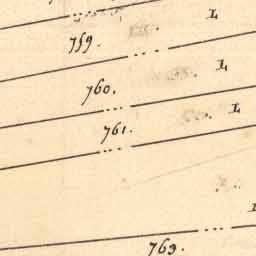 L
759.
L
760.
L
761.
763.